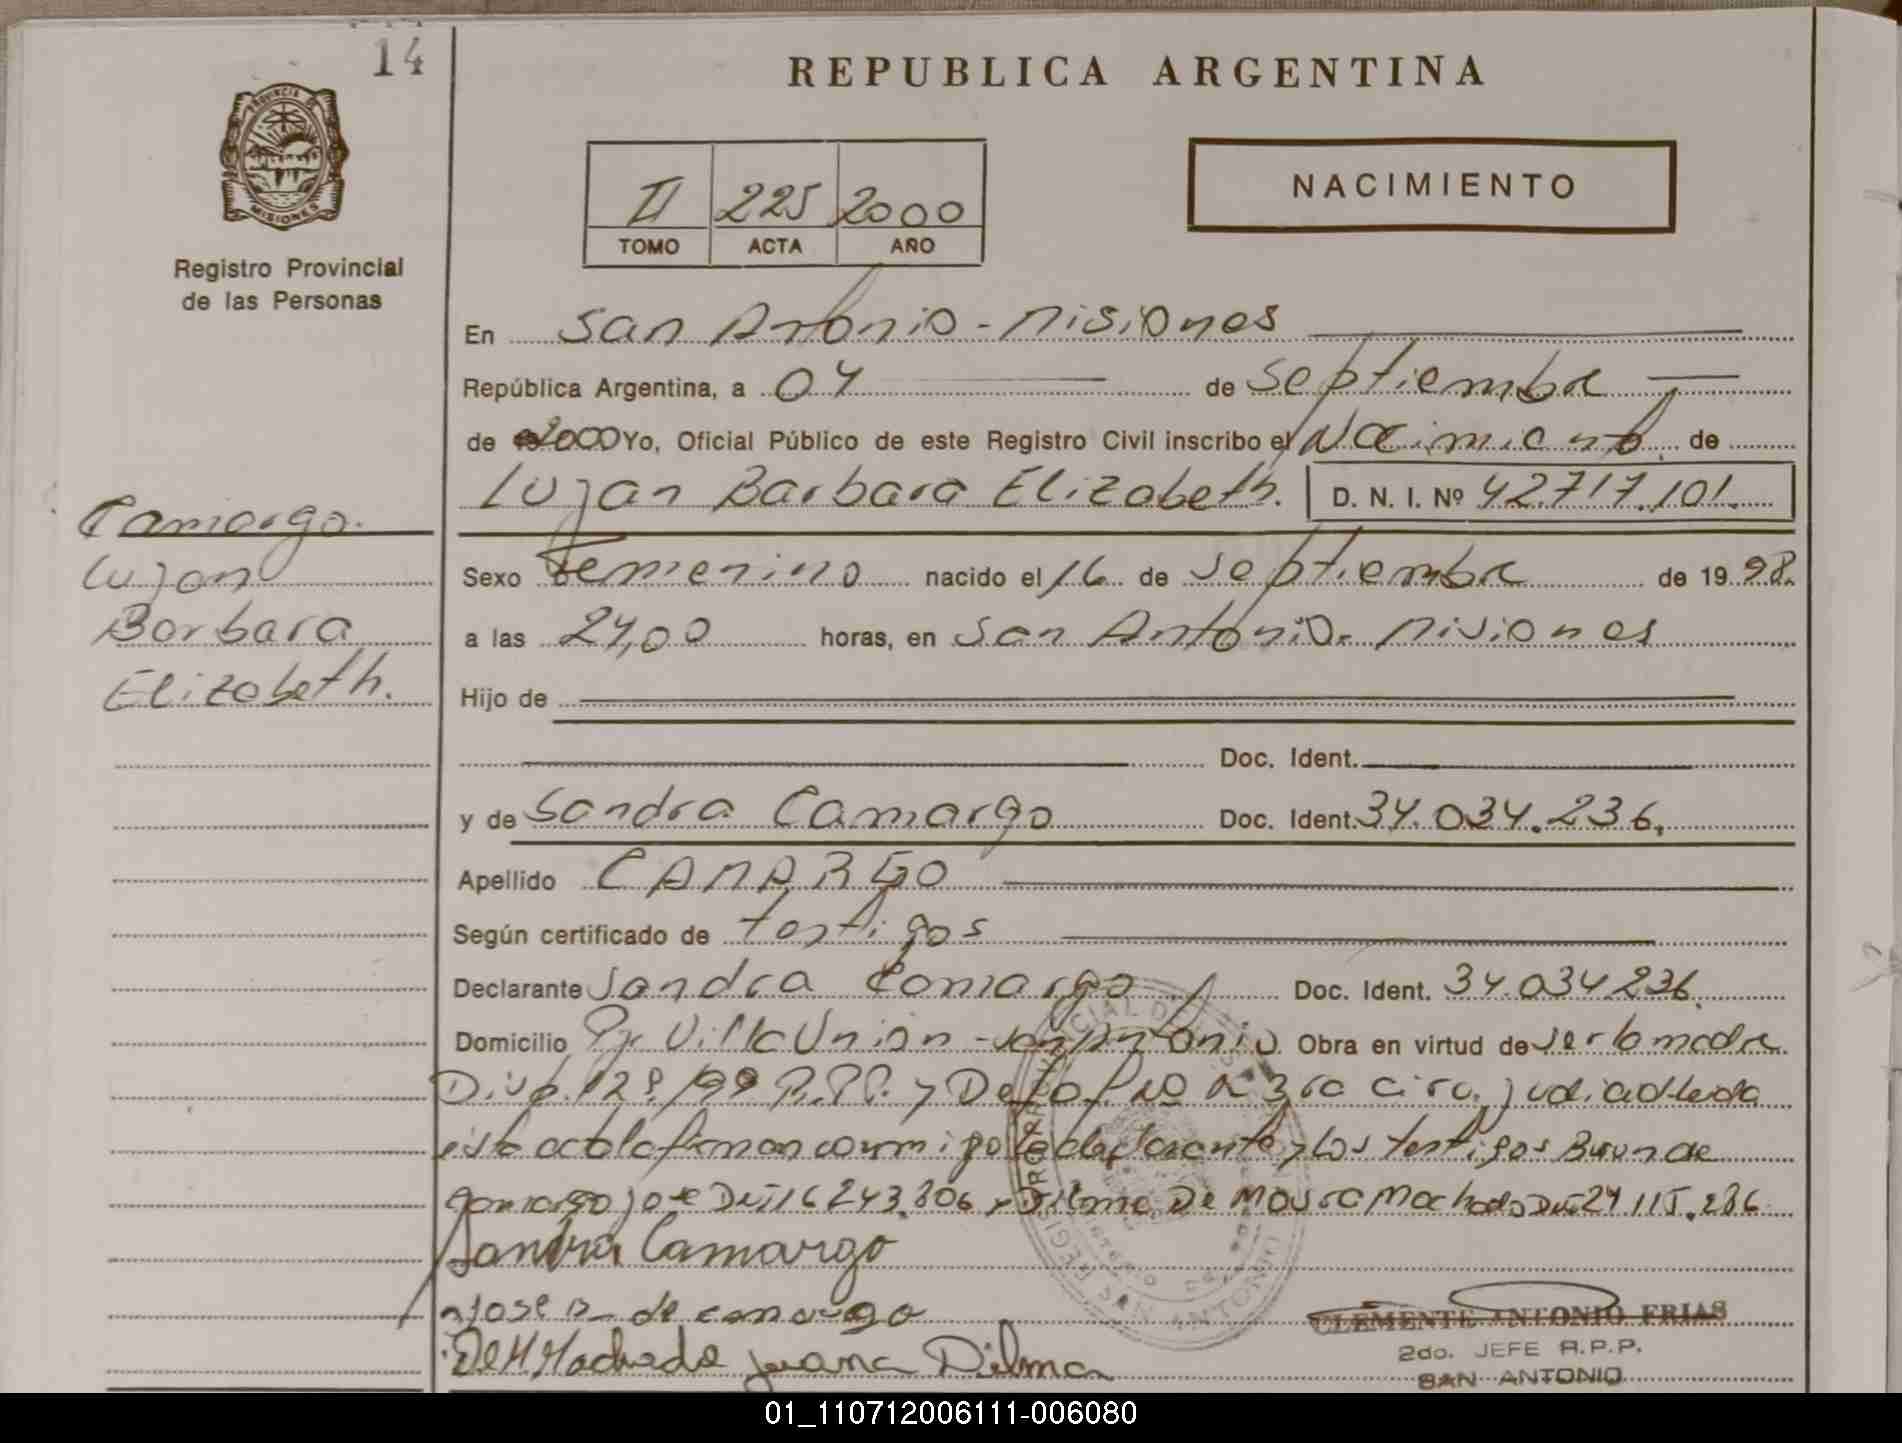 14
REPUBLICA ARGENTINA
PROVINCIA DE
MISIONES
Registro Provincial
de las Personas
II 225 2000
TOMO ACTA AÑO
NACIMIENTO
En San Antonio - Misiones
República Argentina, a 04 de Septiembre
de 2000 Yo, Oficial Público de este Registro Civil inscribo el Nacimiento de
Lujan Barbara Elizabeth. D. N. I. Nº 42.717.101.
Camargo.
Lujan
Barbara
Elizabeth.
Sexo Femenino nacido el 16 de Septiembre de 1998.
a las 24,00 horas, en San Antonio - Misiones
Hijo de
Doc. Ident.
y de Sandra Camargo Doc. Ident. 34.034.236.
Apellido CAMARGO
Según certificado de testigos
Declarante Sandra Camargo Doc. Ident. 34.034.236.
Domicilio Pje Villa Union - San Antonio Obra en virtud de ser la madre
Disp. 12º/99 R.P.P. y 3ra circ. judicial leida
esta acta la firman conmigo la declarante y los testigos
Camargo Jose 16.243.806 y Dilma De Moura Machado 24.115.286.
Sandra Camargo
Jose de camargo
De M. Machado Juana Dilma
SAN ANTONIO
CLEMENTE ANTONIO FRIAS
2do. JEFE R.P.P.
SAN ANTONIO
01_110712006111-006080